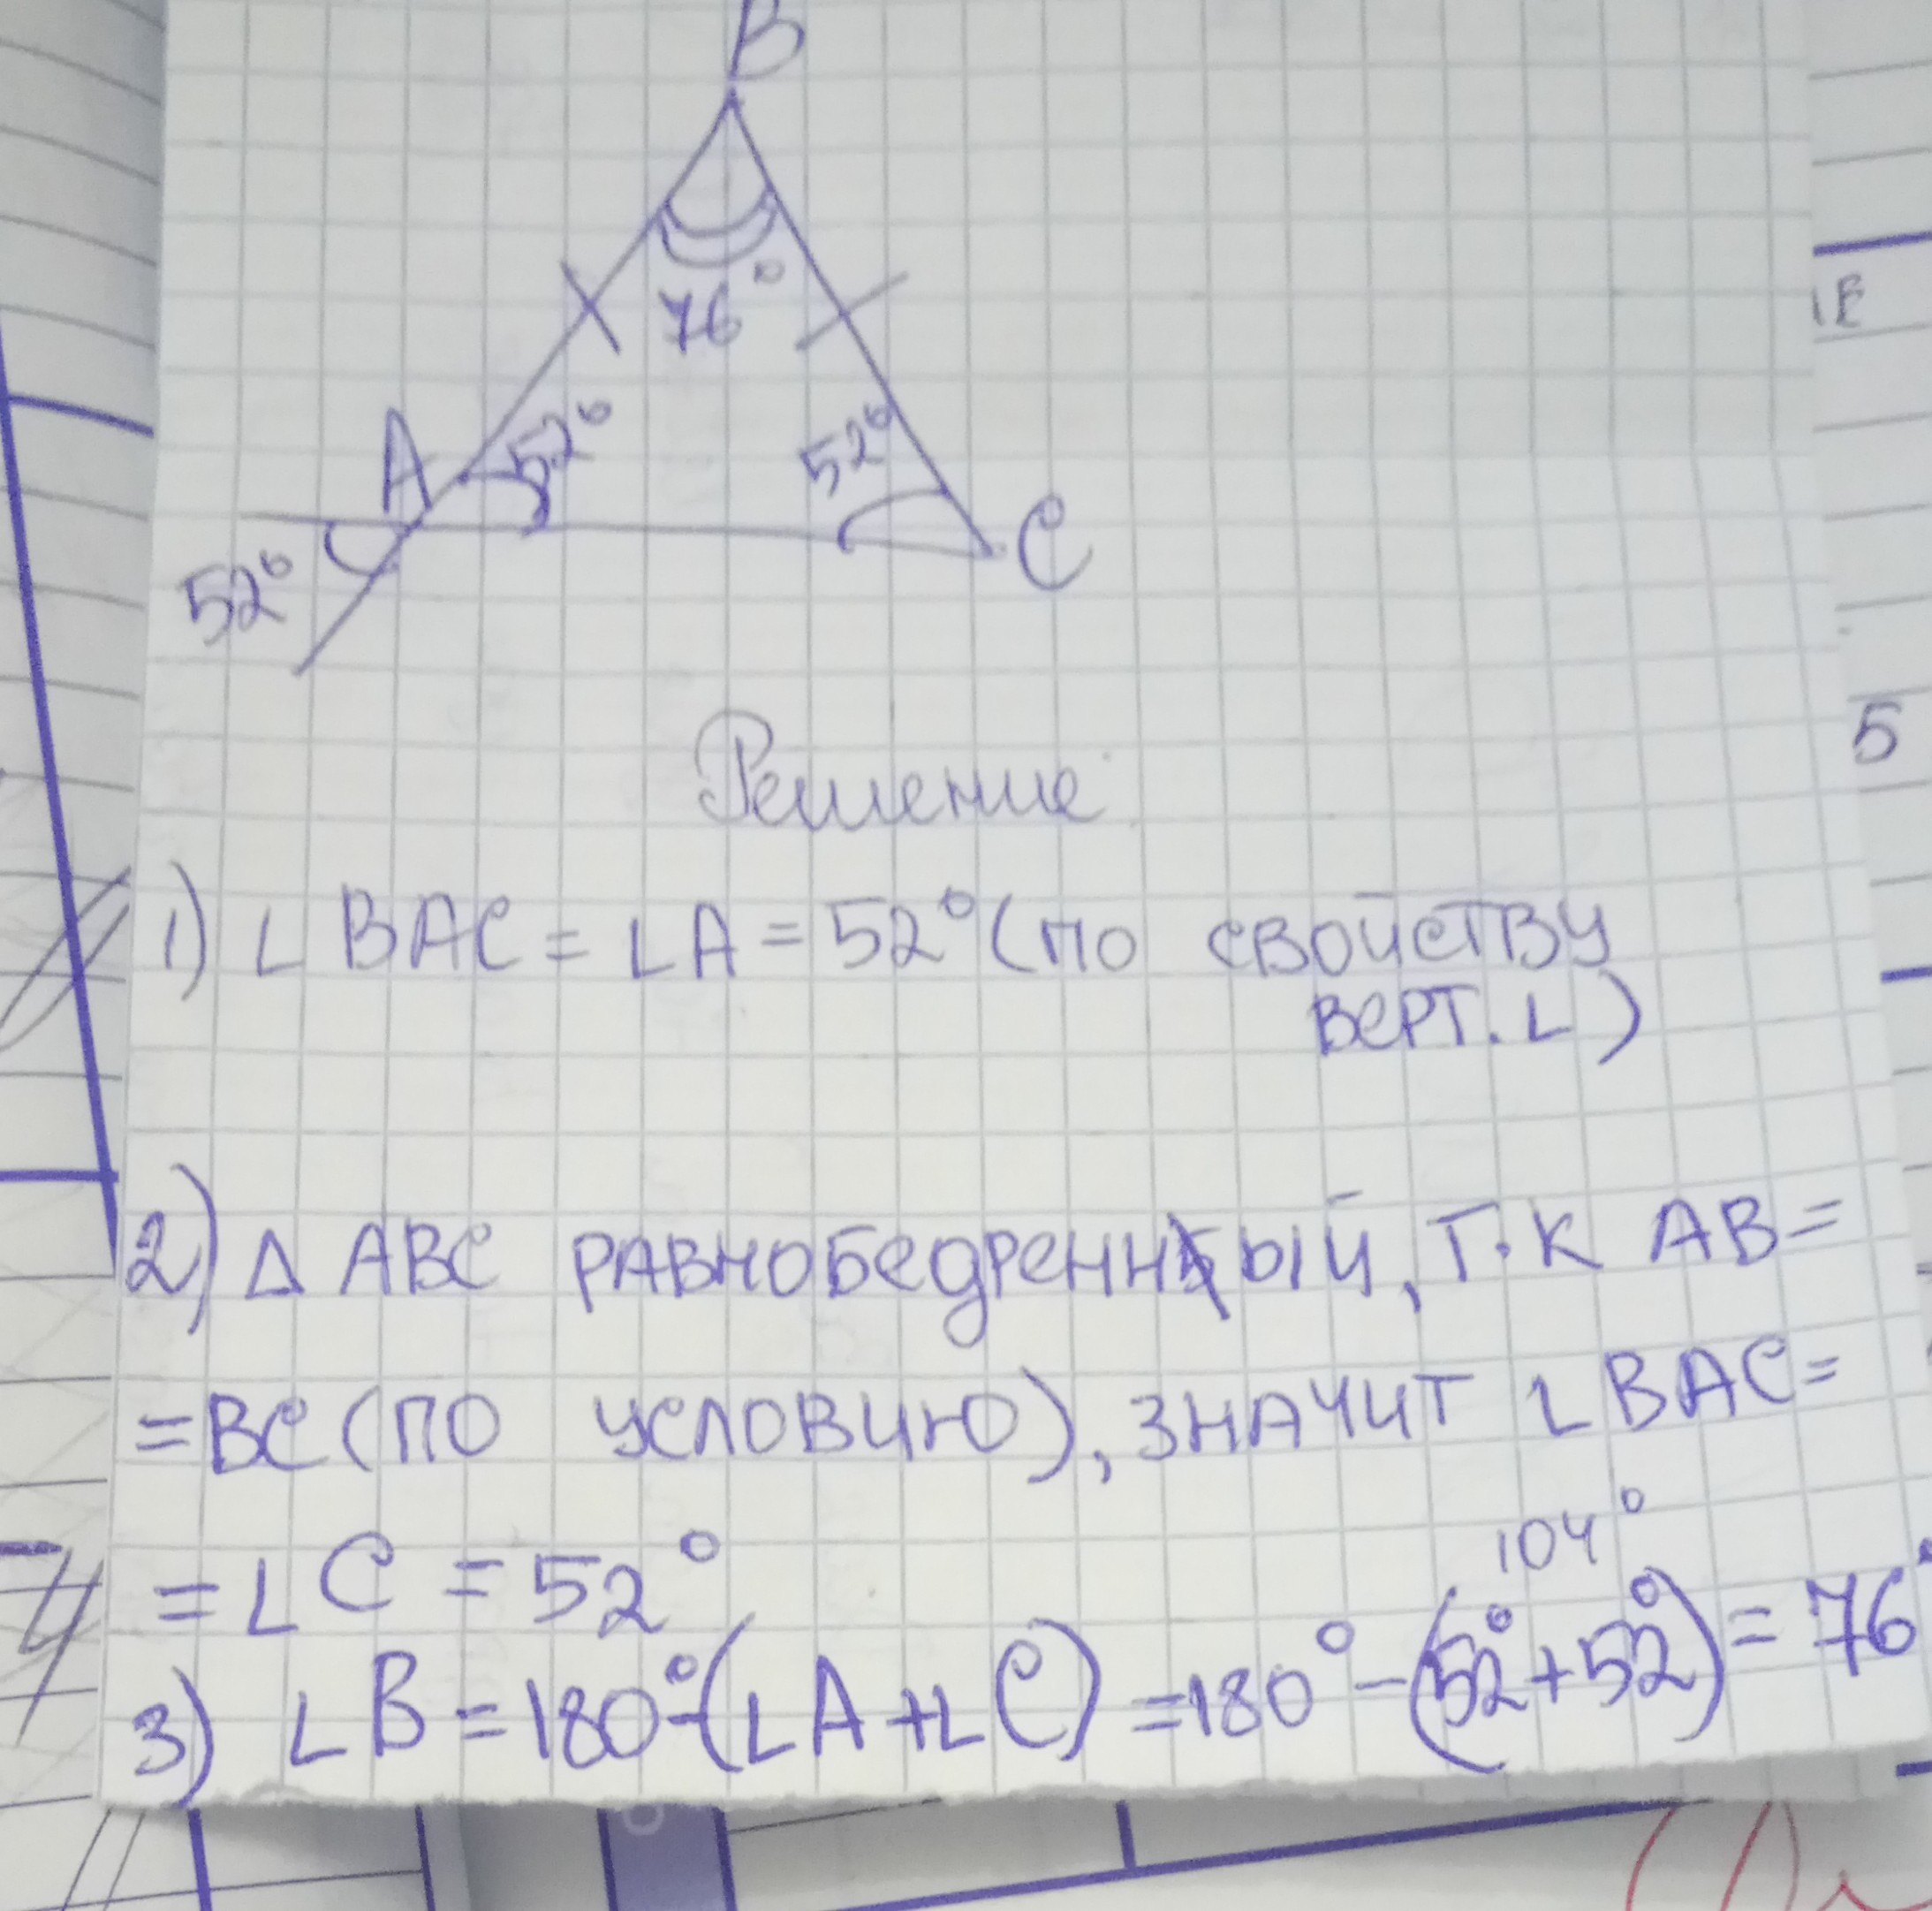 B
76°
A
52°
52°
C
52°
1E
5
Решение
1) ∠ BAC = ∠A = 52° (по свойству
верт. ∠)
2) Δ ABC равнобедренный, т.к AB =
= BC (по условию), значит ∠ BAC =
= ∠ C = 52°
104°
3) ∠ B = 180° - (∠ A + ∠ C) = 180° - (52° + 52°) = 76°